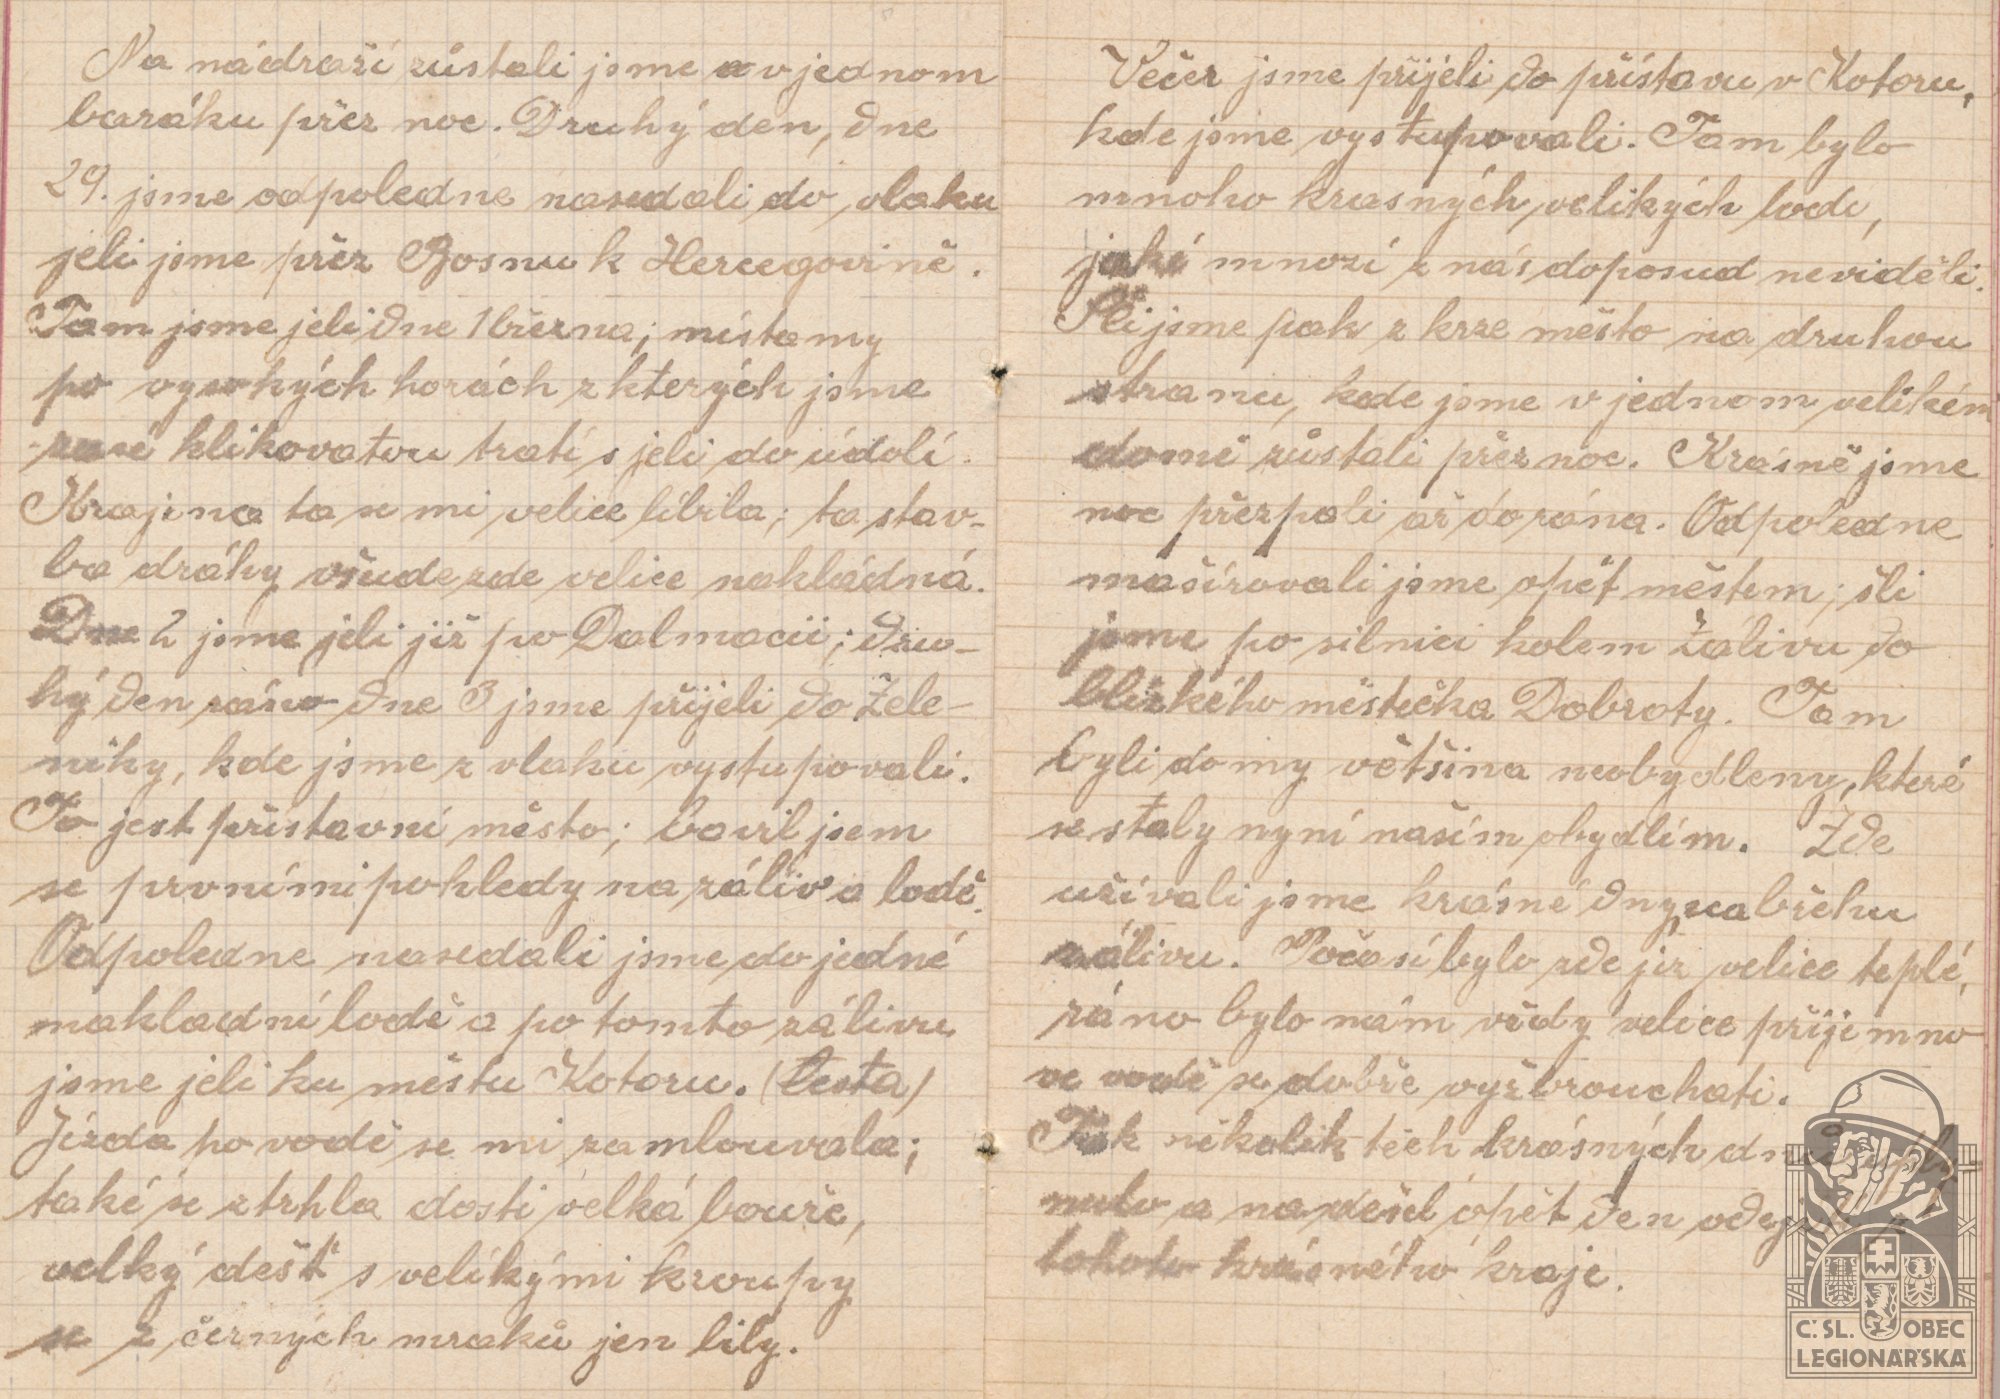 Na nádraží zůstali jsme v jednom
baráku přez noc. Druhý den, dne
29. jsme odpoledne nasedali do vlaku
jeli jsme přez Bosnu k Hercegovině.
Tam jsme jeli dne 1 března; místamy
po vysokých horách z kterých jsme
zase klikovatou tratí sjeli do údolí.
Krajina ta se mi velice líbila; ta stav-
ba dráhy všude zde velice nakládná.
Dne 2 jsme jeli již po Dalmacii; dru-
hý den ráno dne 3 jsme přijeli do Zele-
niky, kde jsme z vlaku vystupovali.
To jest přístavní město; bavil jsem
se prvními pohledy na záliv a lodě.
Odpoledne nasedali jsme do jedné
nakladní lodě a po tomto zálivu
jsme jeli ku městu Kotoru. (Cesta)
Jízda po vodě se mi zamlouvala;
také se ztrhla dosti velká bouře,
velký déšť s velikými kroupy
se z černých mraků jen lily.
Večer jsme přijeli do přístavu v Kotoru,
kde jsme vystupovali. Tam bylo
mnoho krasných velikých lodi,
jaké mnozí z nás doposud neviděli.
Šli jsme pak z krze město na druhou
stranu, kde jsme v jednom velikém
domě zůstali přez noc. Krásně jsme
noc přezpali až do rána. Odpoledne
maširovali jsme opět městem; šli
jsme po silnici kolem zálivu do
blízkého městečka Dobroty. Tam
byli domy většina neobydleny, které
se staly nyní naším obydlím. Zde
užívali jsme krásné dny na břehu
zálivu. Počasí bylo zde již velice teplé,
ráno bylo nám vždy velice příjemno
ve vodě se dobře vyžbrouchati.
Tak několik těch krásných dnů uply
nulo a nadešel opět den odejití z
tohoto krásného kraje.
Č. SL. OBEC
LEGIONÁŘSKÁ